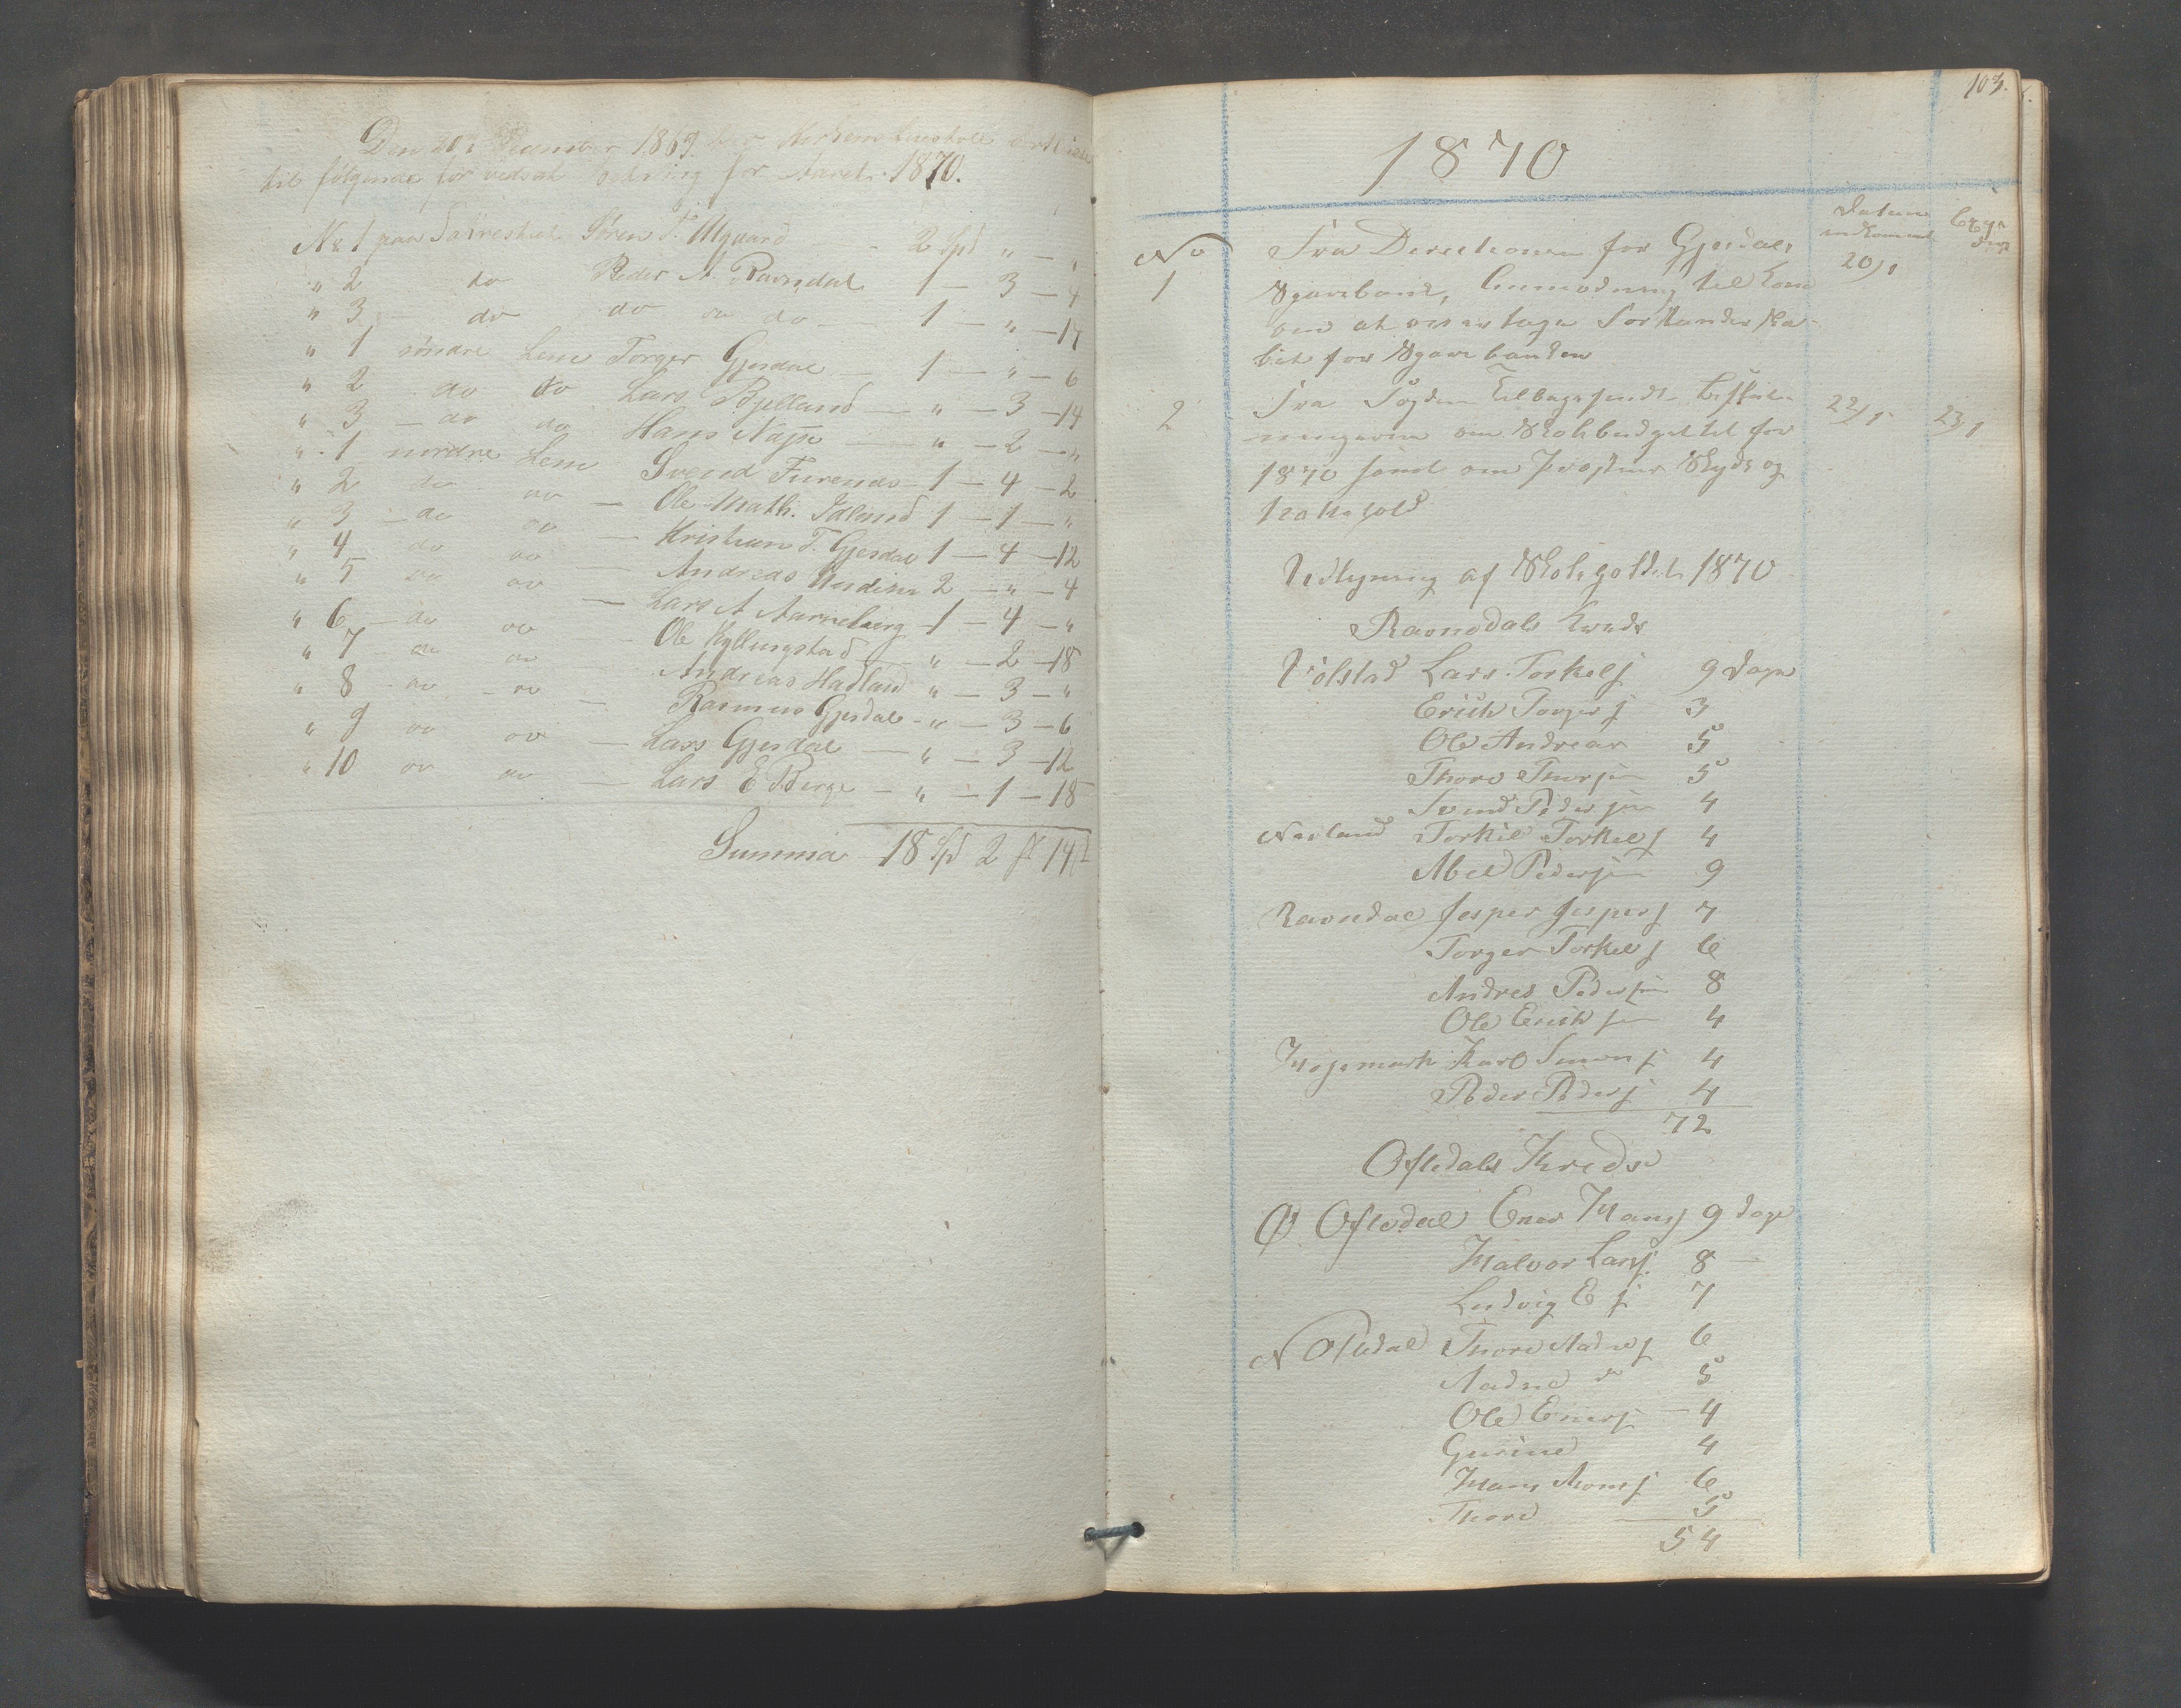 Den 20de December 1869 Kirkens Leiestole
til følgende for vedsat for Aaret 1870.
No 1 paa Søren T. Ulgaard - 2 Spd " - "
" 2 do Peder A. Ravndal 1 - 3 - 4
" 3 - do do do 1 - " - 17
" 1 søndre Lem Torger Gjesdal - 1 - " - 6
" 2 do do Lars Bjelland - " - 3 - 14
" 3 - do do Hans - " - 2 - "
" 1 nordre Lem Svend Furenes - 1 - 4 - 2
" 2 do do - Ole Math. Idland 1 - 1 - "
" 3 - do do - Kristian T. Gjesdal 1 - 4 - 12
" 4 do do - Andreas 2 - " - 4
" 5 do do - Lars A 1 - 4 - "
" 6 - do do - Ole Kyllingstad - " - 2 - 18
" 7 - do do - Andreas Hadland " - 3 - "
" 8 - do - do - Rasmus Gjesdal - " - 3 - 6
" 9 do do - Lars Gjesdal - " - 3 - 12
" 10 do do - Lars E Berge - " - 1 - 18
Summa 18 Spd 2 14
103.
1870
Datum
indkommet
No Fra Directionen for Gjesdals 20/1
1 Sparebank, Anmodning til Kom
om at overtage Forstanderska-
bet for Sparebanken
2 Fra Fogden Tilbagesendt 22/1 23/1
om Skolebudgettet for
1870 samt om Skyds og
Udligning af Skoleholdet 1870
Ravndals Kreds
Lars Torkelsj 9 Dage
Erick Torgersj 3
Ole Andreas 5
Thore Thorsen 5
Svend Pedersen 4
Nævland Torkil Torkelsj 4
Abel Pedersen 9
Ravndal Jesper Jespersj 7
Torger Torkelsj 6
Andres Pedersen 8
Ole Ericksen 4
Karl Simonsj 4
Peder Pedersj 4
72
Ofstedals Kreds
Ø Ofstedal Ener Hansj 9 Dage
Halvor Larsj. 8 -
Ludvig E sj 7
N Ofstedal Thore Aadnesj 6
Aadne do 5
Ole Enersj - 4
Gurine 4
Hans 6
Thore 5
54